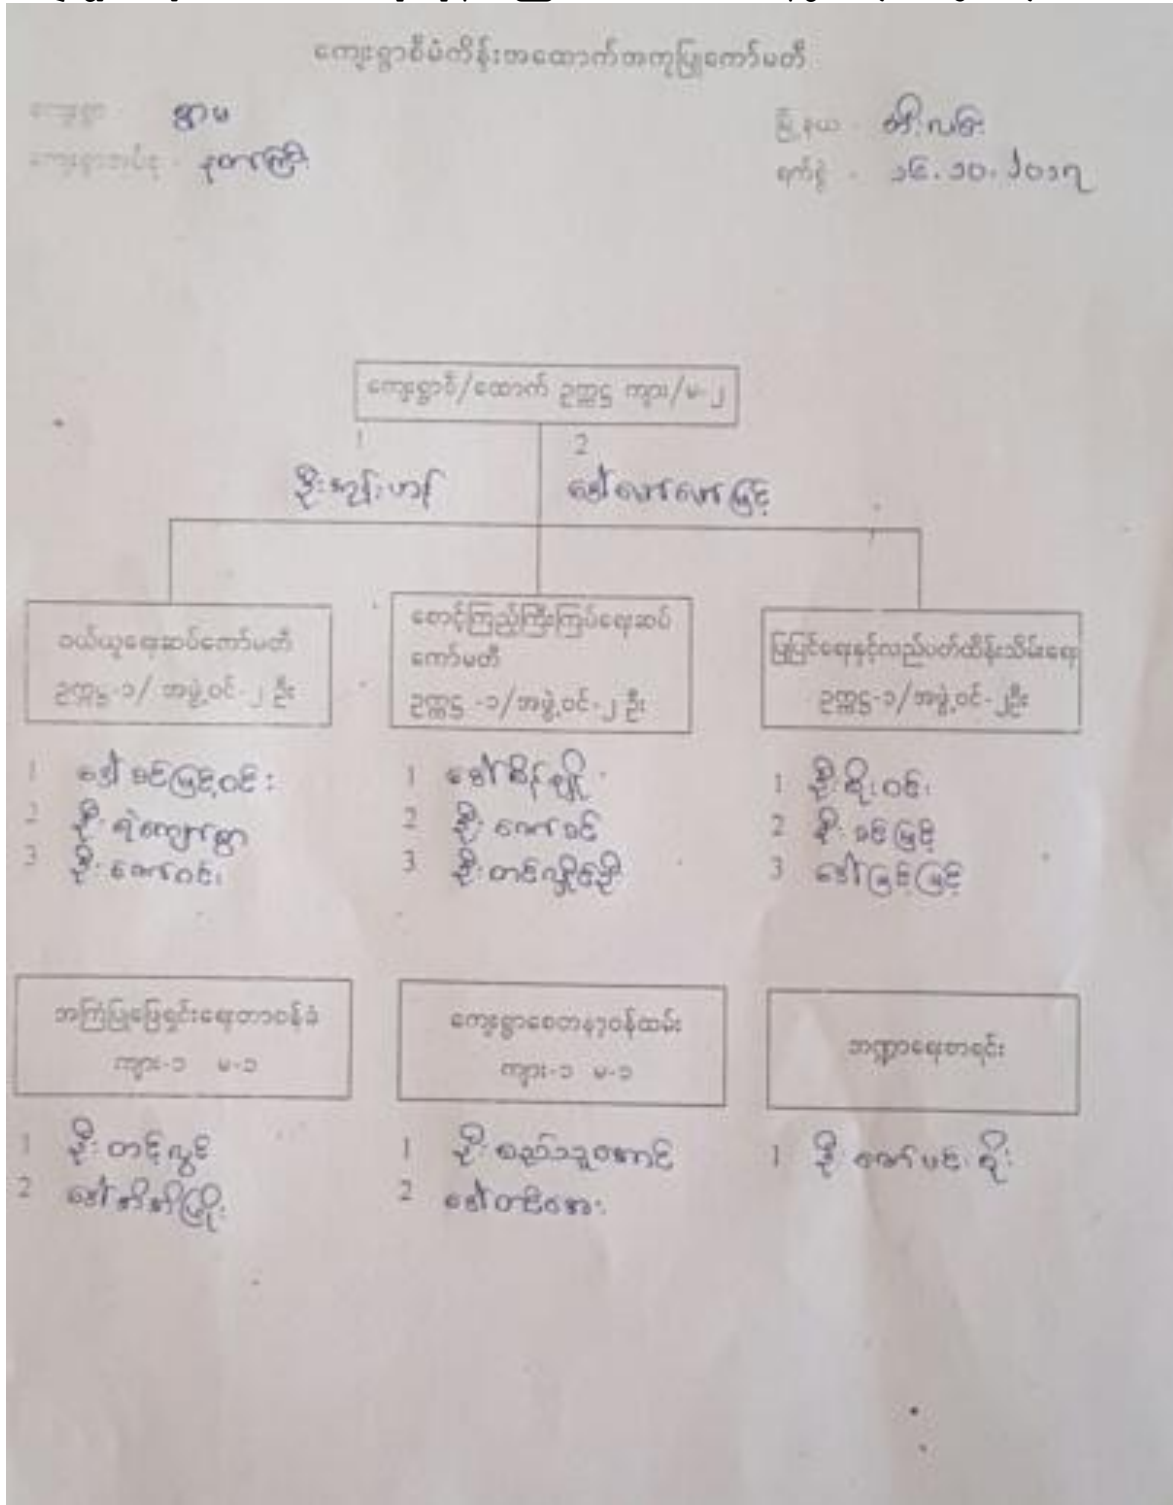 ကျေးရွာစီမံကိန်းအထောက်အကူပြုကော်မတီ
ကျေးရွာ - ရွာမ
မြို့နယ် - ထီးလင်း
ကျေးရွာအုပ်စု - နတ်ကြီး
ရက်စွဲ - ၁၆.၁၀.၂၀၁၇
ကျေးရွာစီ/ထောက် ဥက္ကဋ္ဌ ကျား/မ-၂
1 2
ဦးကျန်းဟန် ဒေါ်ဖော်ဖော်မြင့်
ဝယ်ယူရေးဆပ်ကော်မတီ
ဥက္ကဋ္ဌ-၁/အဖွဲ့ဝင်-၂ဦး
1 ဒေါ်ခင်မြင့်ဝင်း
2 ဦးရဲကျော်စွာ
3 ဦးဇော်ဝင်း
စောင့်ကြည့်ကြီးကြပ်ရေးဆပ်
ကော်မတီ
ဥက္ကဋ္ဌ-၁/အဖွဲ့ဝင်-၂ဦး
1 ဒေါ်စိန်ချို
2 ဦးဇော်ခင်
3 ဦးတင်လှိုင်ဦး
ပြုပြင်ရေးနှင့်လည်ပတ်ထိန်းသိမ်းရေး
ဥက္ကဋ္ဌ-၁/အဖွဲ့ဝင်-၂ဦး
1 ဦးစိုးဝင်း
2 ဦးခင်မြင့်
3 ဒေါ်မြင့်မြင့်
အကြံပြုဖြေရှင်းရေးတာဝန်ခံ
ကျား-၁ မ-၁
1 ဦးတင့်လွင်
2 ဒေါ်အိအိဖြိုး
ကျေးရွာစေတနာ့ဝန်ထမ်း
ကျား-၁ မ-၁
1 ဦးစည်သူအောင်
2 ဒေါ်တင်အေး
ဘဏ္ဍာရေးစာရင်း
1 ဦးဇော်မင်းစိုး